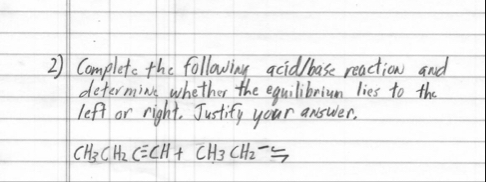 2) Complete the following acid/base reaction and
determine whether the equilibrium lies to the
left or right. Justify your answer.
CH3CH2C≡CH + CH3CH2⁻ ⇋